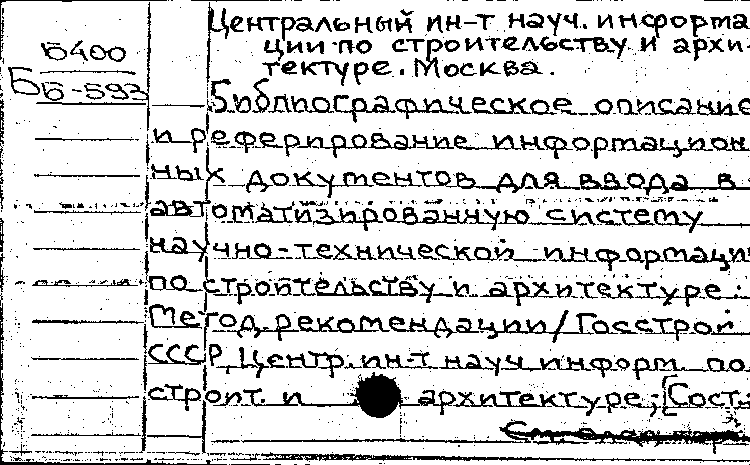 Центральный ин-т науч. информа
ции по строительству и архи-
тектуре. Москва.
Б400
ББ-593
Библиографическое описание
и реферирование информацион
ных документов для ввода в
автоматизированную систему
научно-технической информаци
по строительству и архитектуре:
Метод. рекомендации/Госстрой
СССР, Центр. ин-т науч информ. по
строит. и архитектуре; [Сост.: